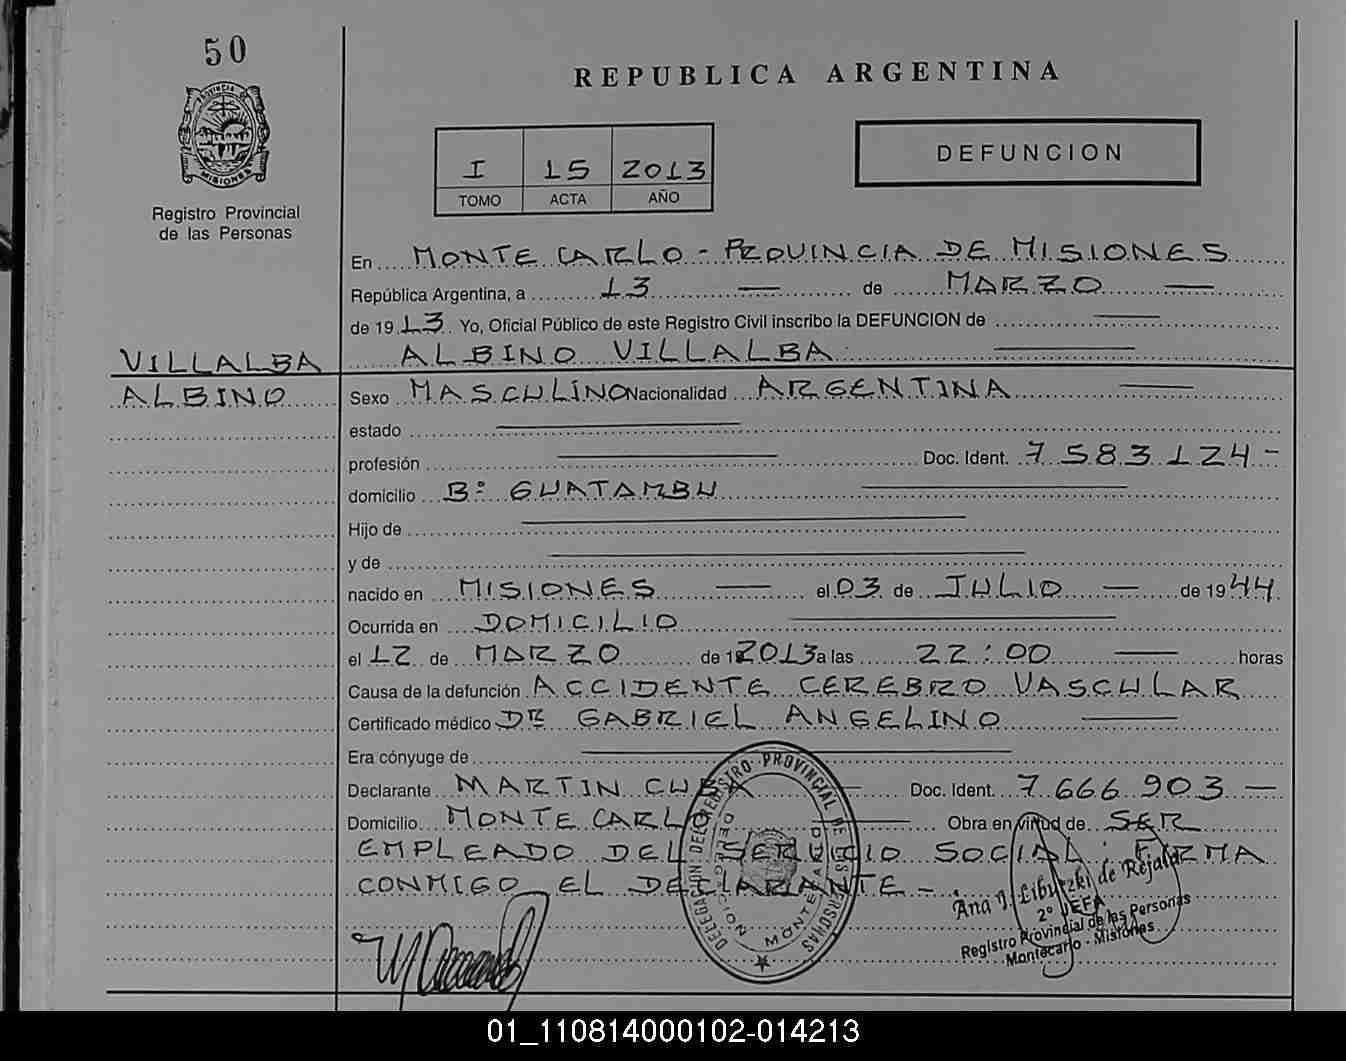 50
PROVINCIA DE
MISIONES
Registro Provincial
de las Personas
REPUBLICA ARGENTINA
I 15 2013
TOMO ACTA AÑO
DEFUNCION
En MONTE CARLO - PROVINCIA DE MISIONES
República Argentina, a 13 — de MARZO —
de 19 13 Yo, Oficial Público de este Registro Civil inscribo la DEFUNCION de —
VILLALBA
ALBINO
ALBINO VILLALBA —
Sexo MASCULINO Nacionalidad ARGENTINA —
estado —
profesión — Doc. Ident. 7 583 124 -
domicilio Bº GUATAMBU —
Hijo de —
y de —
nacido en MISIONES — el 03 de JULIO — de 19 44
Ocurrida en DOMICILIO —
el 12 de MARZO de 2013 a las 22:00 — horas
Causa de la defunción ACCIDENTE CEREBRO VASCULAR
Certificado médico DR GABRIEL ANGELINO —
Era cónyuge de —
Declarante MARTIN CUBA — Doc. Ident. 7 666 903 —
Domicilio MONTE CARLO — Obra en virtud de SER
EMPLEADO DEL SERVICIO SOCIAL. FIRMA
CONMIGO EL DECLARANTE -.
DELEGACIÓN DEL REGISTRO PROVINCIAL DE LAS PERSONAS
DELEGACION MONTECARLO
Ana J. Libutzki de Rejala
2º JEFA
Registro Provincial de las Personas
Montecarlo - Misiones
01_110814000102-014213